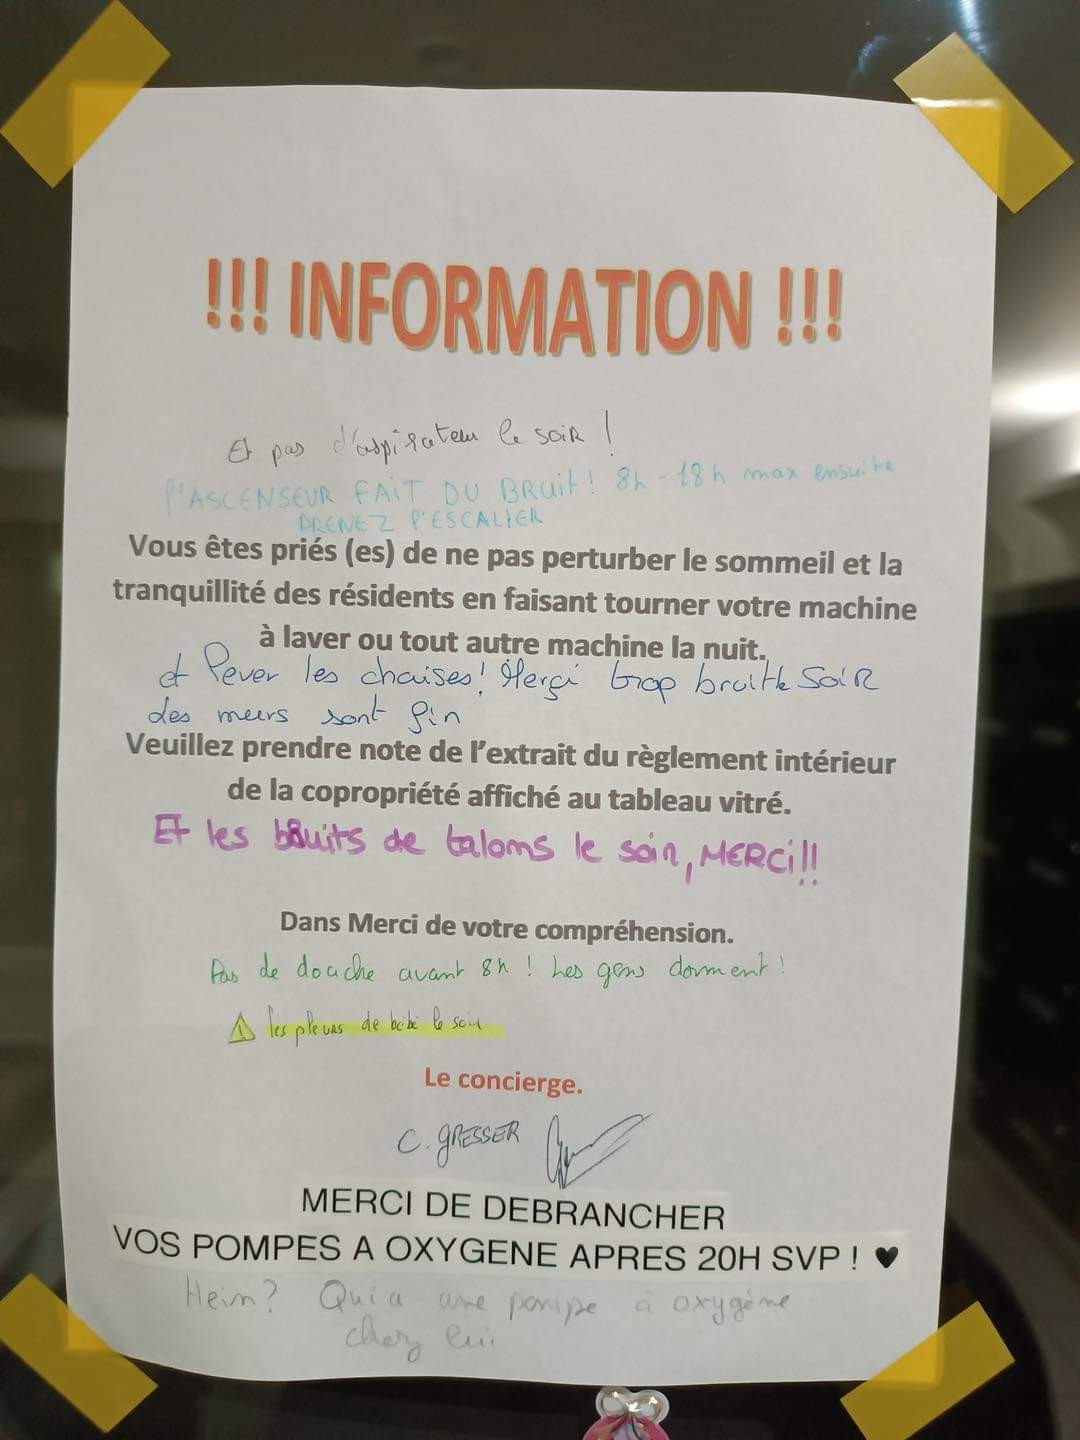 !!! INFORMATION !!!
Et pas d'aspirateur le soir !
l'ASCENSEUR FAIT DU BRuit ! 8h - 18h max ensuite
PRENEZ l'ESCALIER
Vous êtes priés (es) de ne pas perturber le sommeil et la
tranquillité des résidents en faisant tourner votre machine
à laver ou tout autre machine la nuit.
et lever les chaises! Merçi trop bruit le SoiR
des meurs sont fin
Veuillez prendre note de l'extrait du règlement intérieur
de la copropriété affiché au tableau vitré.
Et les bRuits de talons le soir, MERCi!!
Dans Merci de votre compréhension.
Pas de douche avant 8h ! Les gens dorment !
⚠ les pleurs de bébé le soir
Le concierge.
C. GRESSER
MERCI DE DEBRANCHER
VOS POMPES A OXYGENE APRES 20H SVP ! ♥
Hein? Qui a une pompe à oxygène
chez lui